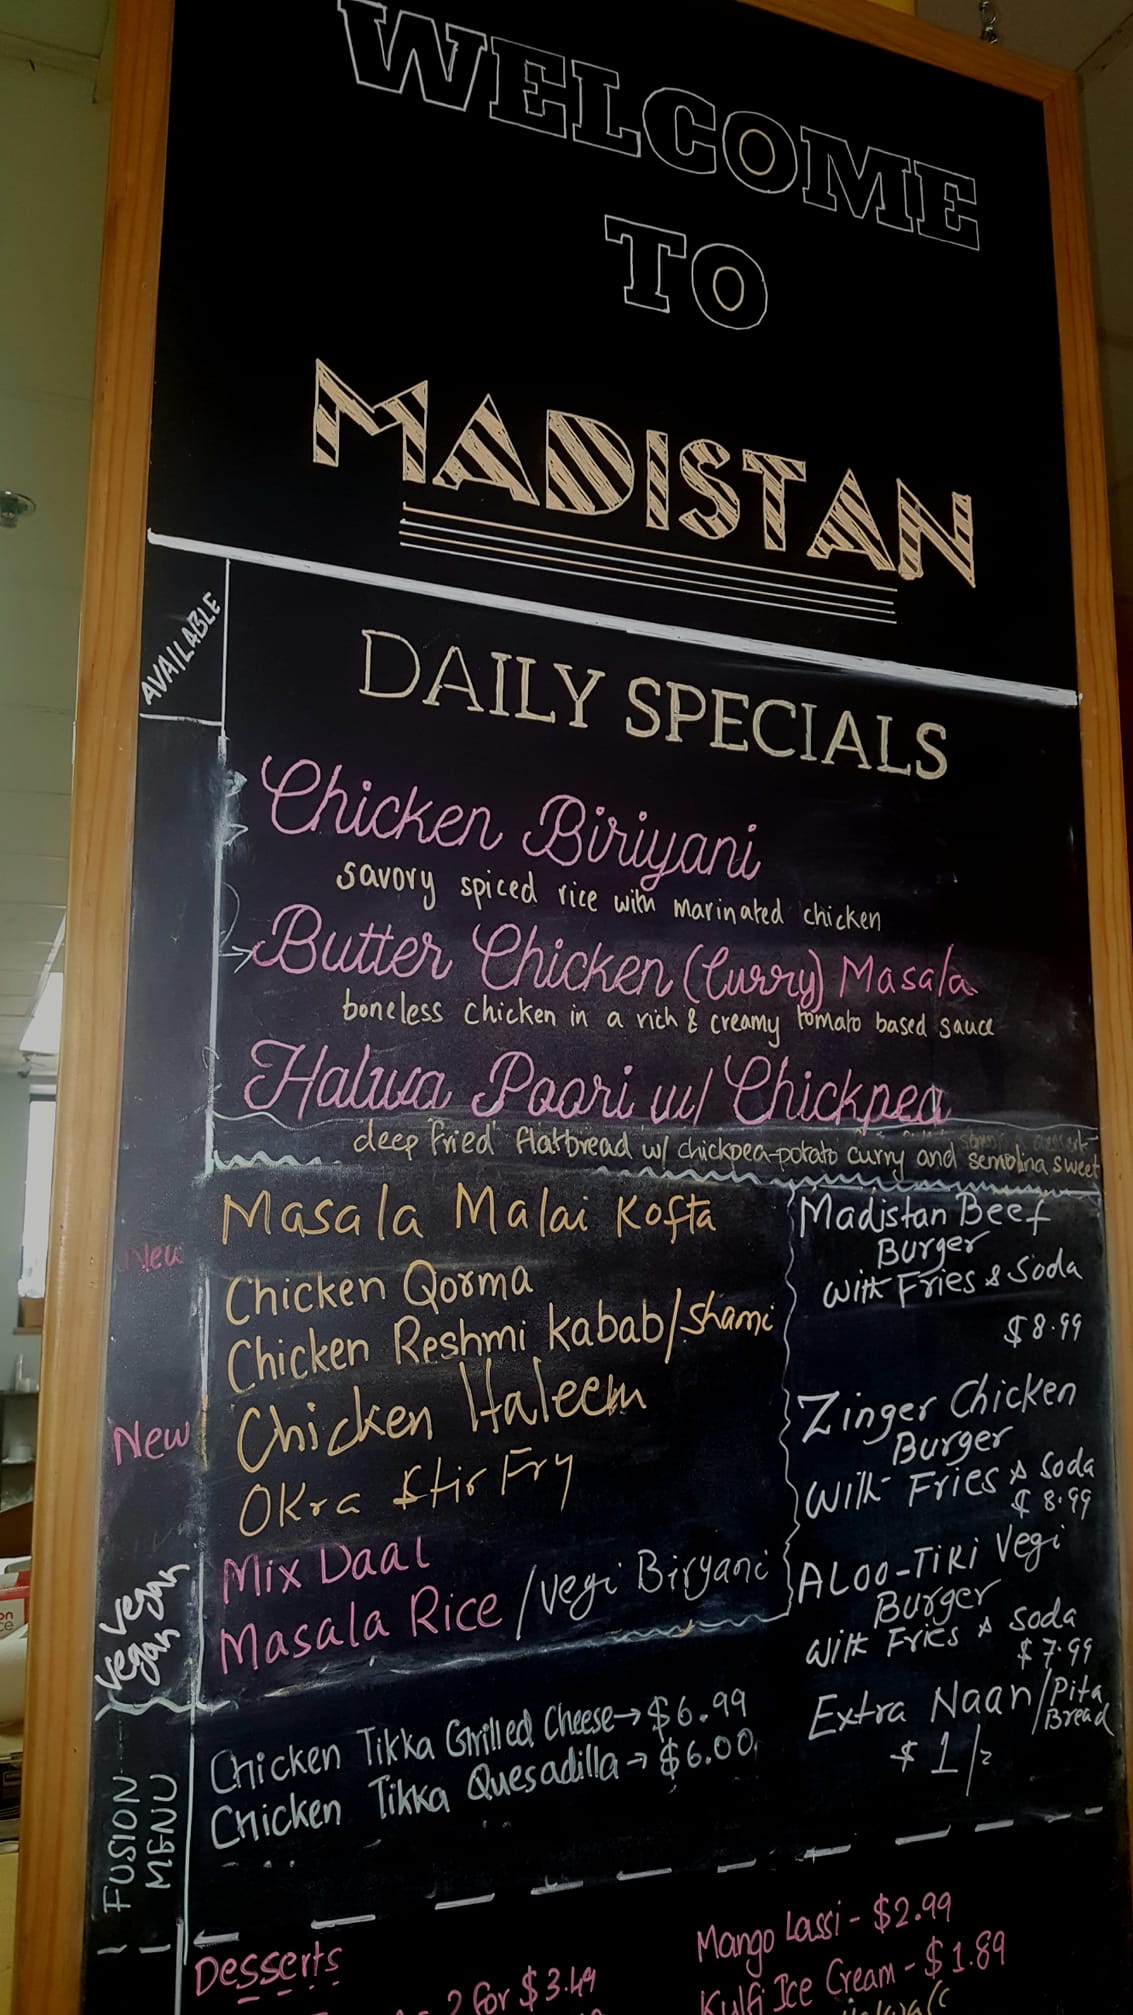 WELCOME
TO
MADISTAN
AVAILABLE
DAILY SPECIALS
Chicken Biriyani
savory spiced rice with marinated chicken
Butter Chicken (Curry) Masala
boneless chicken in a rich & creamy tomato based sauce
Halwa Poori w/ Chickpea
deep fried flatbread w/ chickpea-potato curry and semolina sweet
Masala Malai Kofta
New
Chicken Qorma
Chicken Reshmi Kabab/Shami
Chicken Haleem
New
Okra Stir Fry
Mix Daal
Masala Rice /Vegi Biryani
Vegan
Madistan Beef
Burger
with Fries & Soda
$8.99
Zinger Chicken
Burger
with Fries & Soda
$8.99
ALOO-TIKI Vegi
Burger
with Fries & Soda
$7.99
Extra Naan/Pita
Bread
$1/
FUSION
MENU
Chicken Tikka Grilled Cheese→$6.99
Chicken Tikka Quesadilla→$6.00
Desserts
2 for $3.49
Mango Lassi - $2.99
Kulfi Ice Cream - $1.89